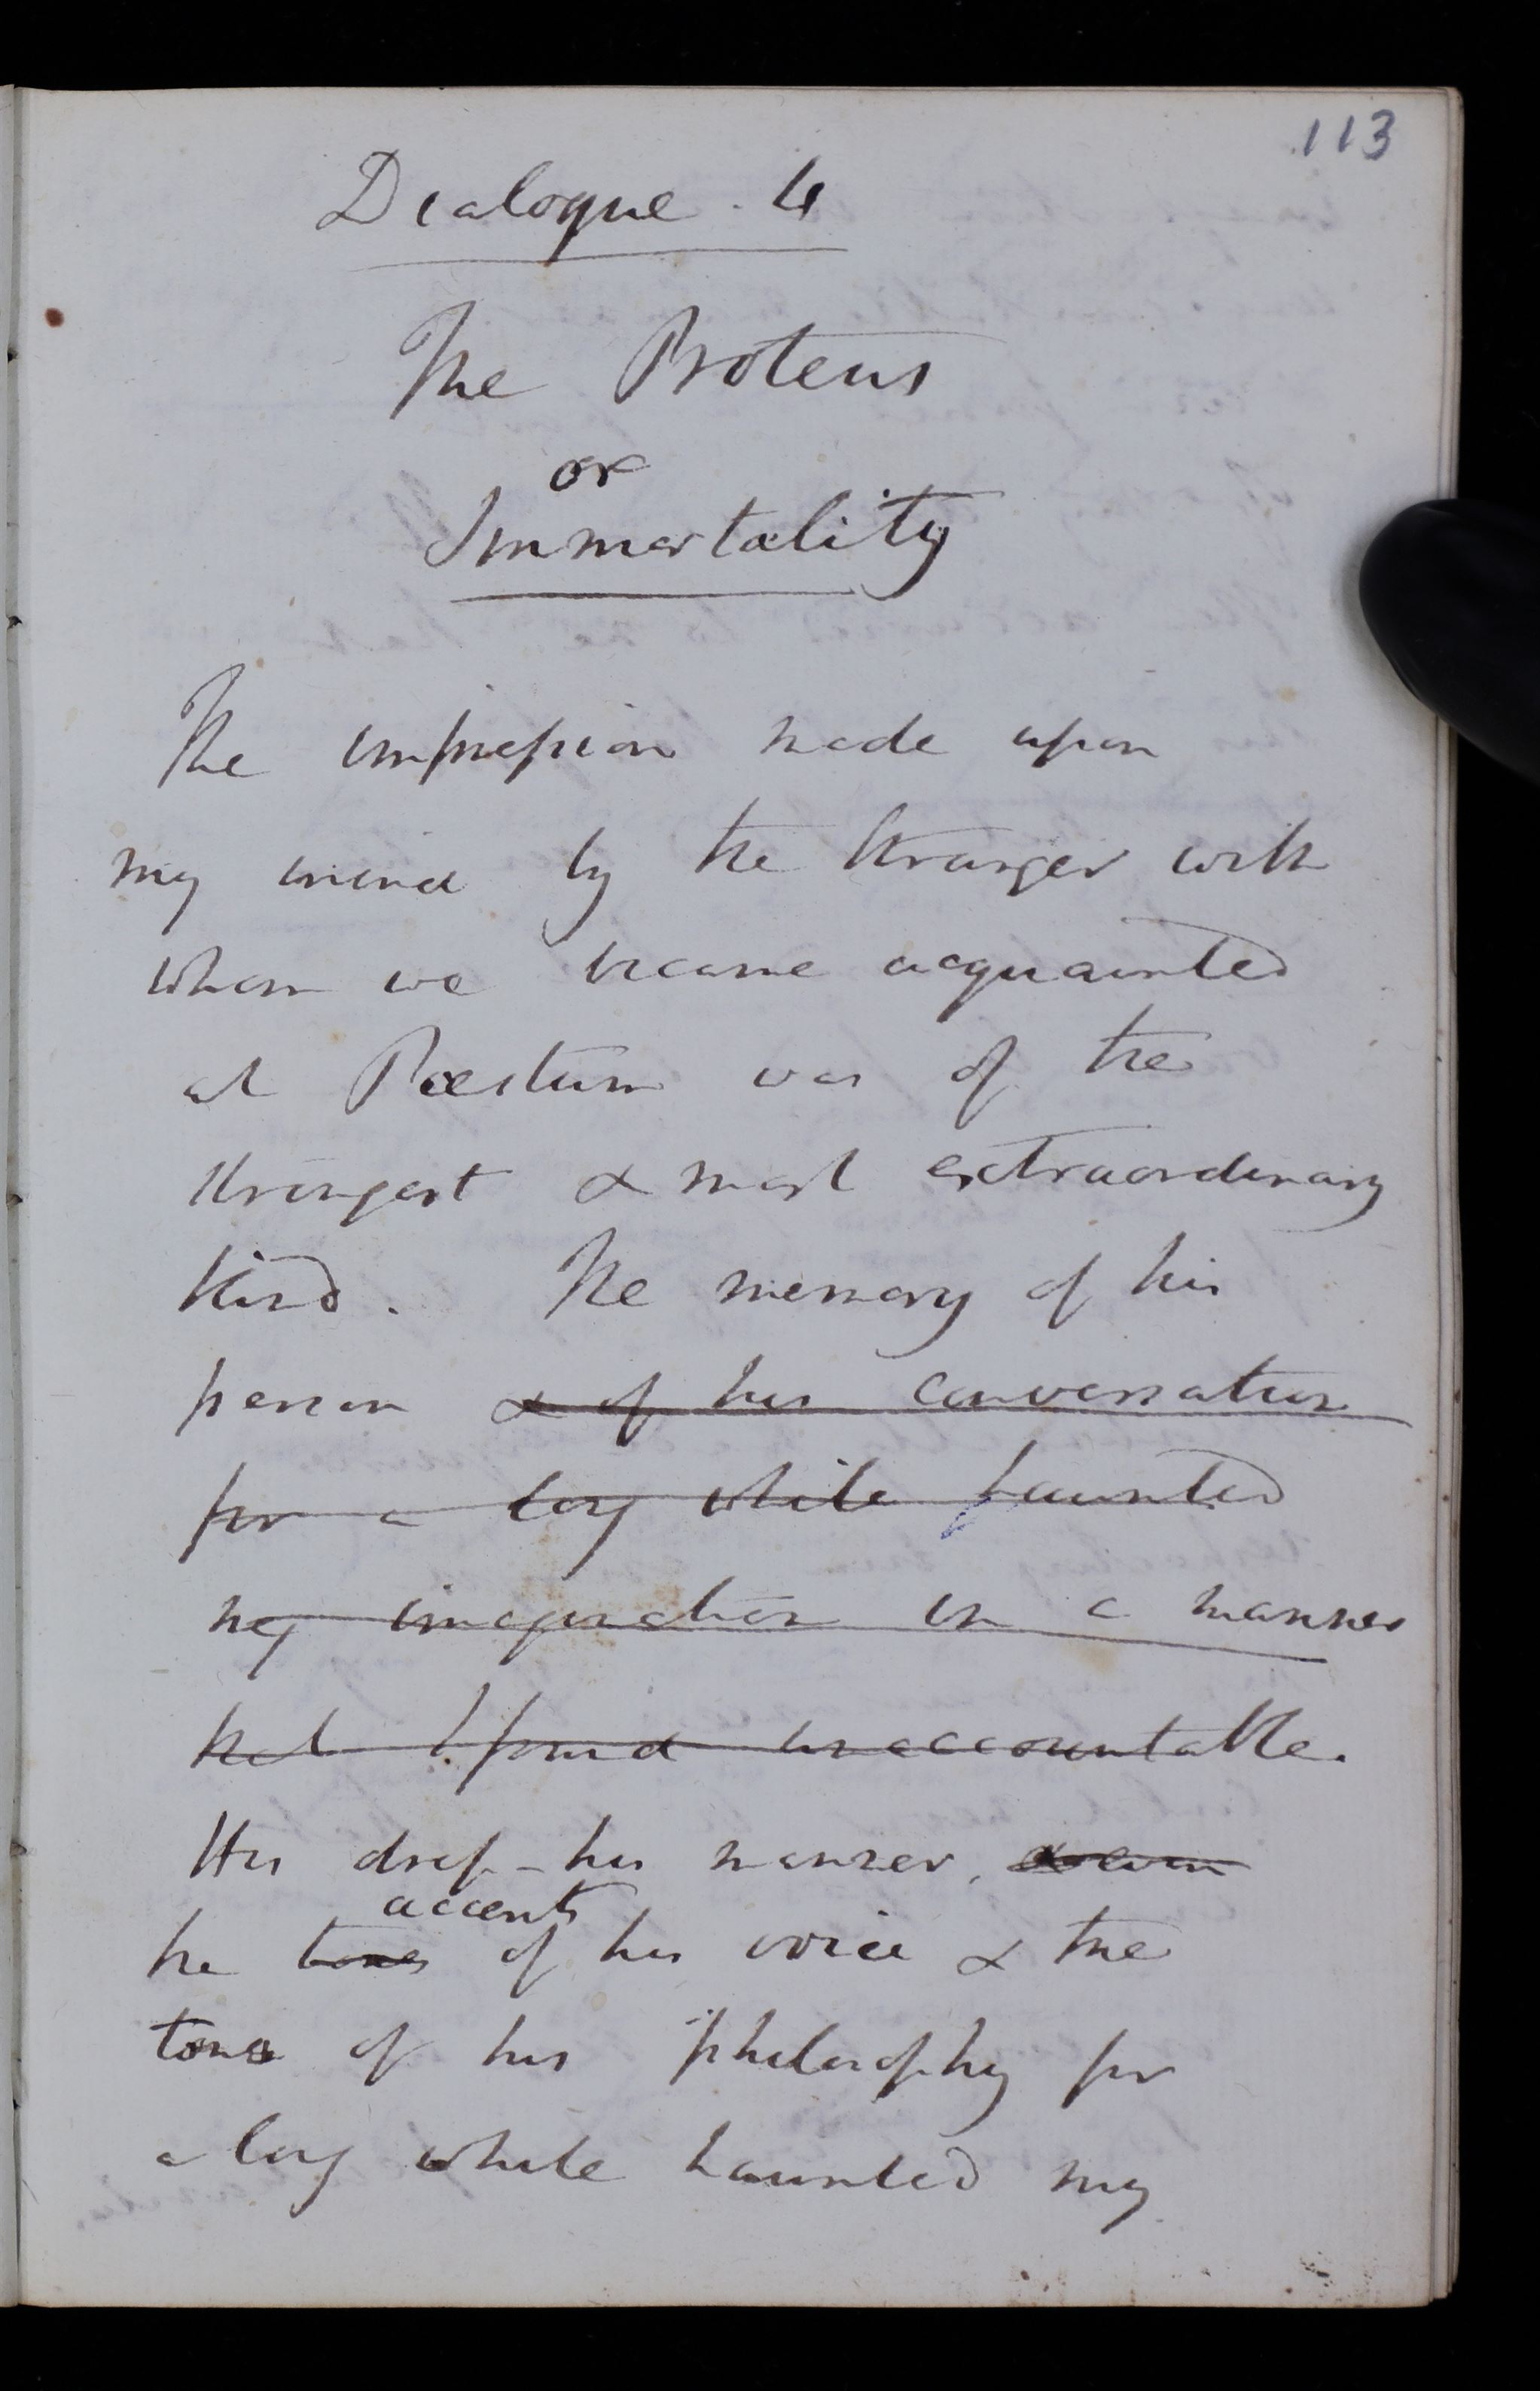 113
Dialogue. 4
The Proteus
or
Immortality
The impression made upon
my mind by the stranger with
whom we became acquainted
at Pæstum was of the
strongest & most extraordinary
kind. The memory of his
person & of his conversation
for a long while haunted
my imagination in a manner
that I found unaccountable.
His dress - his manner, & even
accents
the tones of his voice & the
tone of his philosophy for
a long while haunted my